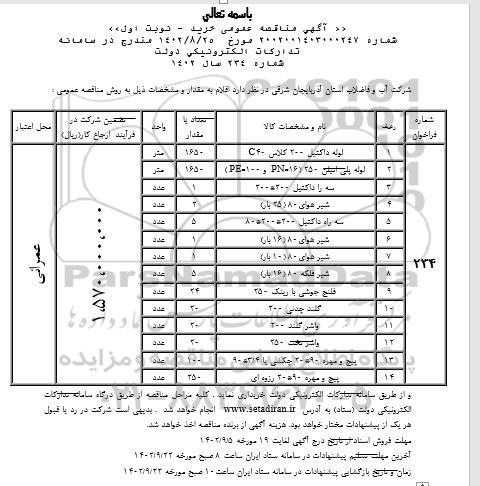 باسمه تعالي
<< آگهي مناقصه عمومی خرید - نوبت اول>>
شماره ۲۰۰۲۰۰۱۴۰۳۰۰۰۲۴۷ مورخ ۱۴۰۲/۸/۲۵ مندرج در سامانه
تدارکات الکترونیکي دولت
شماره ۲۳۴ سال ۱۴۰۲
شرکت آب و فاضلاب استان آذربایجان شرقی در نظر دارد اقلام به مقدار و مشخصات ذیل به روش مناقصه عمومی :
شماره فراخوان ردیف نام و مشخصات کالا تعداد یا مقدار واحد تضمین شرکت در فرآیند ارجاع کار(ریال) محل اعتبار
۲۳۴ ۱,۵۷۰,۰۰۰,۰۰۰ عمرانی
۱ لوله داکتیل ۲۰۰ کلاس C۴۰ ۱۶۵۰ متر
۲ لوله پلی اتیلن ۲۵۰ (PN=۱۶ و PE=۱۰۰) ۱۶۵۰ متر
۳ سه را داکتیل ۲۰۰*۲۰۰ ۱ عدد
۴ شیر هوای ۸۰ (۲۵ بار) ۲ عدد
۵ سه راه داکتیل ۲۰۰*۲۰۰*۸۰ ۵ عدد
۶ شیر هوای ۸۰ (۱۶ بار) ۱ عدد
۷ شیر هوای ۸۰ (۱۰ بار) ۱ عدد
۸ شیر فلکه ۸۰ (۱۶ بار) ۵ عدد
۹ فلنج جوشی با رینگ ۲۵۰ ۲۴ عدد
۱۰ گلند چدنی ۲۰۰ ۲۰ عدد
۱۱ واشر گلند ۲۰۰ ۲۰ عدد
۱۲ واشر تخت ۲۵۰ ۲۰ عدد
۱۳ پیچ و مهره ۹۰*۲۰ چکشی یا ۳/۴*۹۰ ۱۰۰ عدد
۱۴ پیچ و مهره ۹۰*۲۰ رزوه ای ۲۵۰ عدد
و از طریق سامانه تدارکات الکترونیکی دولت خریداری نماید . کلیه مراحل مناقصه از طریق درگاه سامانه تدارکات
الکترونیکی دولت (ستاد) به آدرس www.setadiran.ir انجام خواهد شد . بدیهی است شرکت در رد یا قبول
هر یک از پیشنهادات مختار خواهد بود. هزینه آگهی از برنده مناقصه اخذ خواهد شد.
مهلت فروش اسناد از تاریخ درج آگهی لغایت ۱۹ مورخه ۱۴۰۲/۹/۵
آخرین مهلت تسلیم پیشنهادات در سامانه ستاد ایران ساعت ۸ صبح مورخه ۱۴۰۲/۹/۲۲
زمان و تاریخ بازگشایی پیشنهادات در سامانه ستاد ایران ساعت ۱۰ صبح مورخه ۱۴۰۲/۹/۲۲